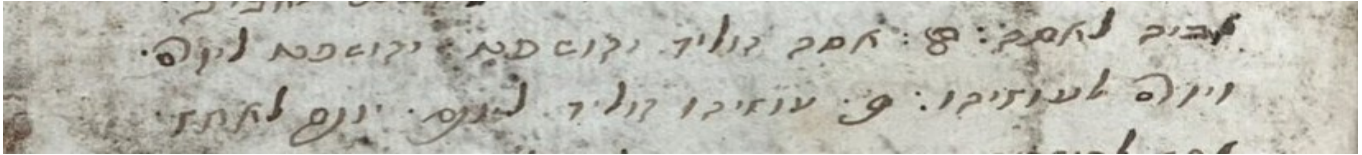 אביה לאסה : 8 : אסה הוליד יהושפט . יהושפט ליורם .
ויורם לעוזיהו : 9 . עוזיהו הוליד ליותם . יותם לאחז .